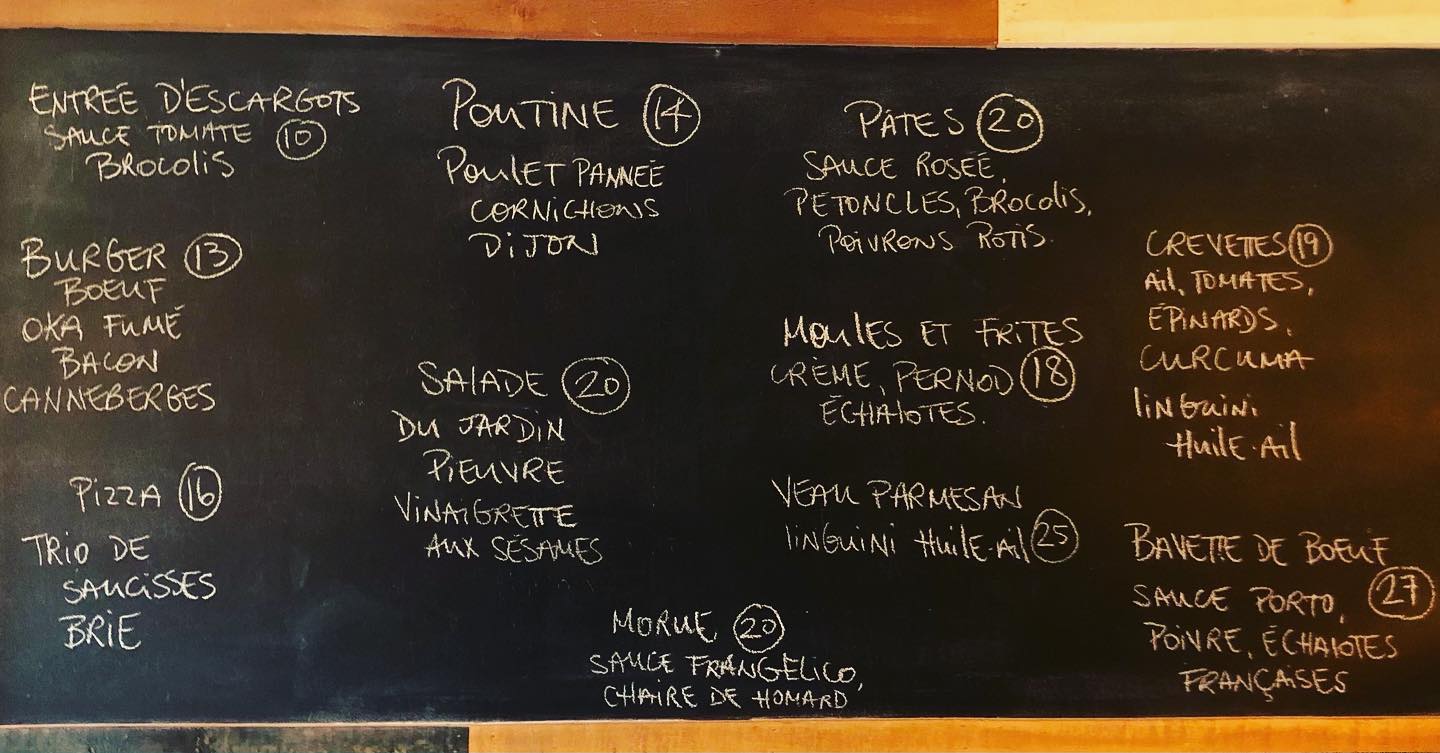 ENTREE D'ESCARGOTS
SAUCE TOMATE 10
BROCOLIS
BURGER 13
BOEUF
OKA FUMÉ
BACON
CANNEBERGES
PIZZA 16
TRIO DE
SAUCISSES
BRIE
POUTINE 14
POULET PANNÉE
CORNICHONS
DIJON
SALADE 20
DU JARDIN
PIEUVRE
VINAIGRETTE
AUX SÉSAMES
MORUE 20
SAUCE FRANGELICO,
CHAIRE DE HOMARD
PATES 20
SAUCE ROSÉE,
PETONCLES, BROCOLIS,
POIVRONS ROTIS.
MOULES ET FRITES
CRÈME, PERNOD 18
ÉCHALOTES.
VEAU PARMESAN
LINGUINI HUILE-AIL 25
CREVETTES 19
AIL, TOMATES,
ÉPINARDS,
CURCUMA
LINGUINI
HUILE-AIL
BAVETTE DE BOEUF
SAUCE PORTO, 27
POIVRE, ÉCHALOTES
FRANÇAISES